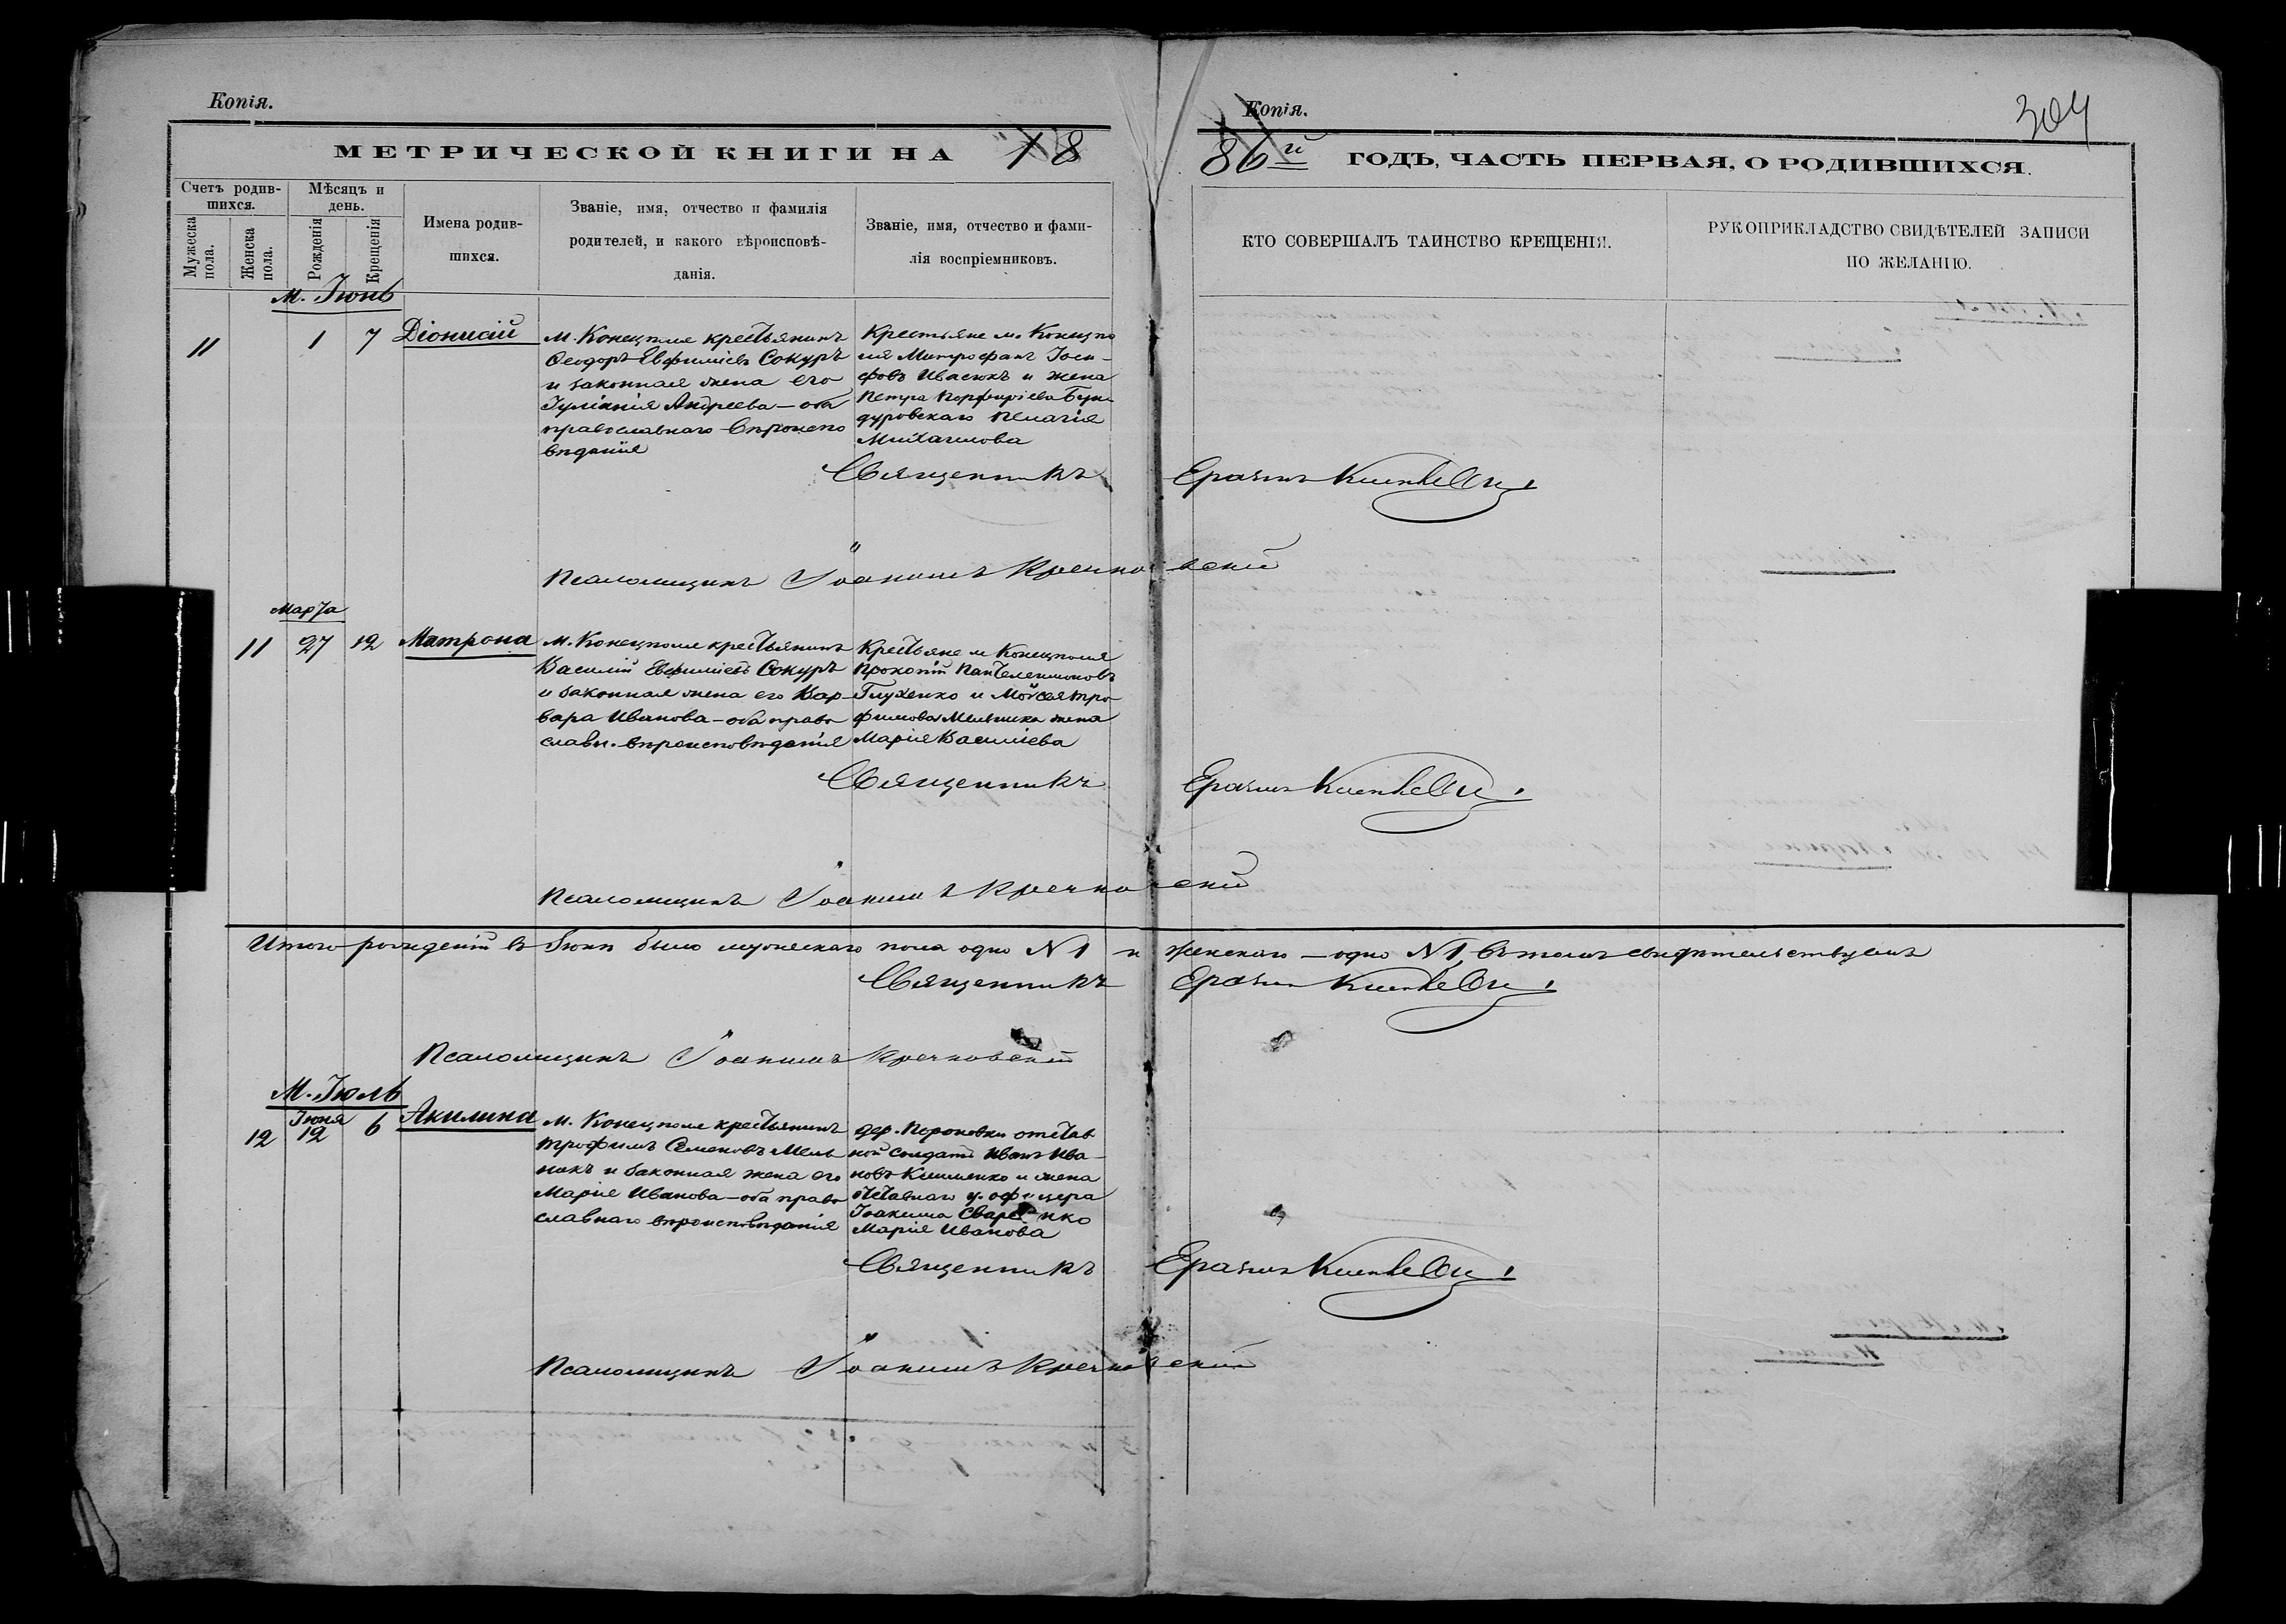 Копія.
Копія.
304
МЕТРИЧЕСКОЙ КНИГИ НА 18
86й ГОДЪ, ЧАСТЬ ПЕРВАЯ, О РОДИВШИХСЯ.
Счетъ родив-
шихся.
Мужеска
пола.
Женска
пола.
Мѣсяцъ и
день.
Рожденія
Крещенія
Имена родив-
шихся.
Званіе, имя, отчество и фамилія
родителей, и какого вѣроисповѣ-
данія.
Званіе, имя, отчество и фами-
лія воспріемниковъ.
КТО СОВЕРШАЛЪ ТАИНСТВО КРЕЩЕНІЯ.
РУКОПРИКЛАДСТВО СВИДѢТЕЛЕЙ ЗАПИСИ
ПО ЖЕЛАНІЮ.
М. Іюнь
11 1 7 Діонисій
м. Конецполя крестьянинъ
Ѳеодоръ Евфиміевъ Сокуръ
и законная жена его
Іуліанія Андреева – оба
православнаго вѣроиспо
вѣданія
Крестьяне м. Конецпо
ля Митрофанъ Іоси-
фовъ Ивасюкъ и жена
Петра Порфиріева Бун
дуровскаго Пелагія
Михаилова
Священникъ
Псаломщикъ Іоакимъ Кречковскій
Марта
11 27 12 Матрона
м. Конецполя крестьянинъ
Василій Евфиміевъ Сокуръ
и законная жена его Вар-
вара Иванова – оба право
славн. вѣроисповѣданія
Крестьяне м Конецполя
Прокопій Пантелеимоновъ
Глухенко и Мойсея Тро-
фимова Мельника жена
Марія Василіева
Священникъ
Псаломщикъ Іоакимъ Кречковскій
Итого рожденій въ Іюнѣ было мужескаго пола одно N 1 и женскаго – одно N 1, въ томъ свидѣтельствуемъ
Священникъ
Псаломщикъ Іоакимъ Кречковскій
М. Іюль
Іюня
12 12 6 Акилина
м. Конецполя крестьянинъ
Трофимъ Семеновъ Мель
никъ и законная жена его
Марія Иванова – оба право
славнаго вѣроисповѣданія
дер. отстав
ной солдатъ Иванъ Ива-
новъ и жена
отставнаго у. офицера
Іоакима
Марія Иванова
Священникъ
Псаломщикъ Іоакимъ Кречковскій